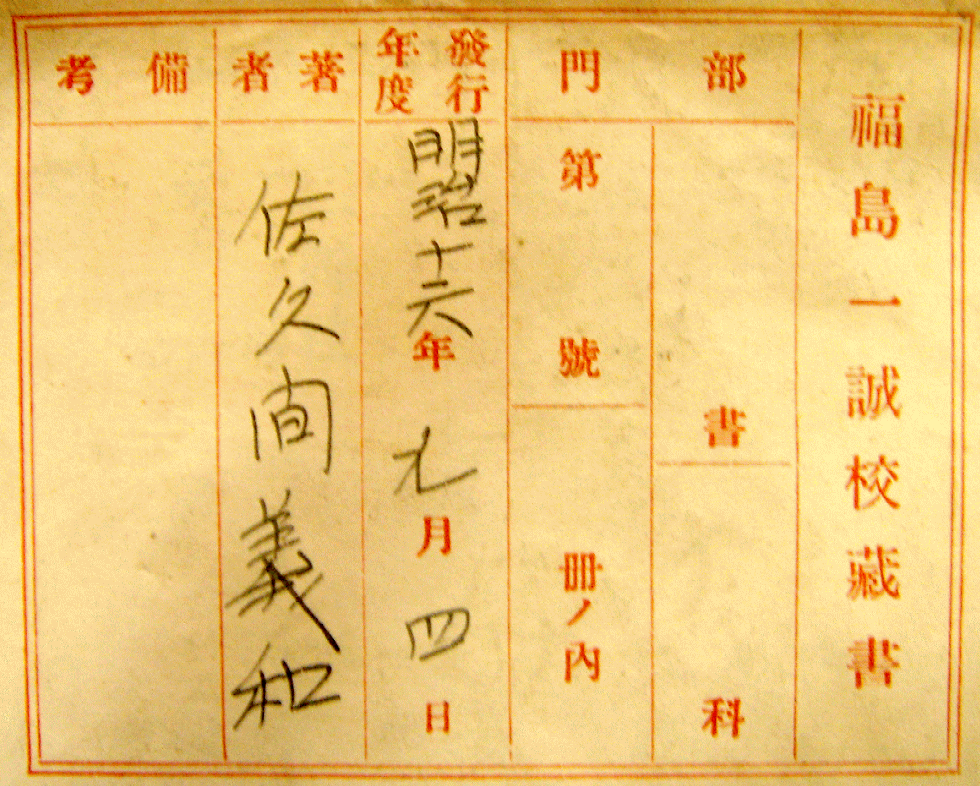 福島一誠校藏書
部門
書
科
第　號
冊ノ內
發行
年度
明治十六年九月四日
著者
佐久間義和
備考